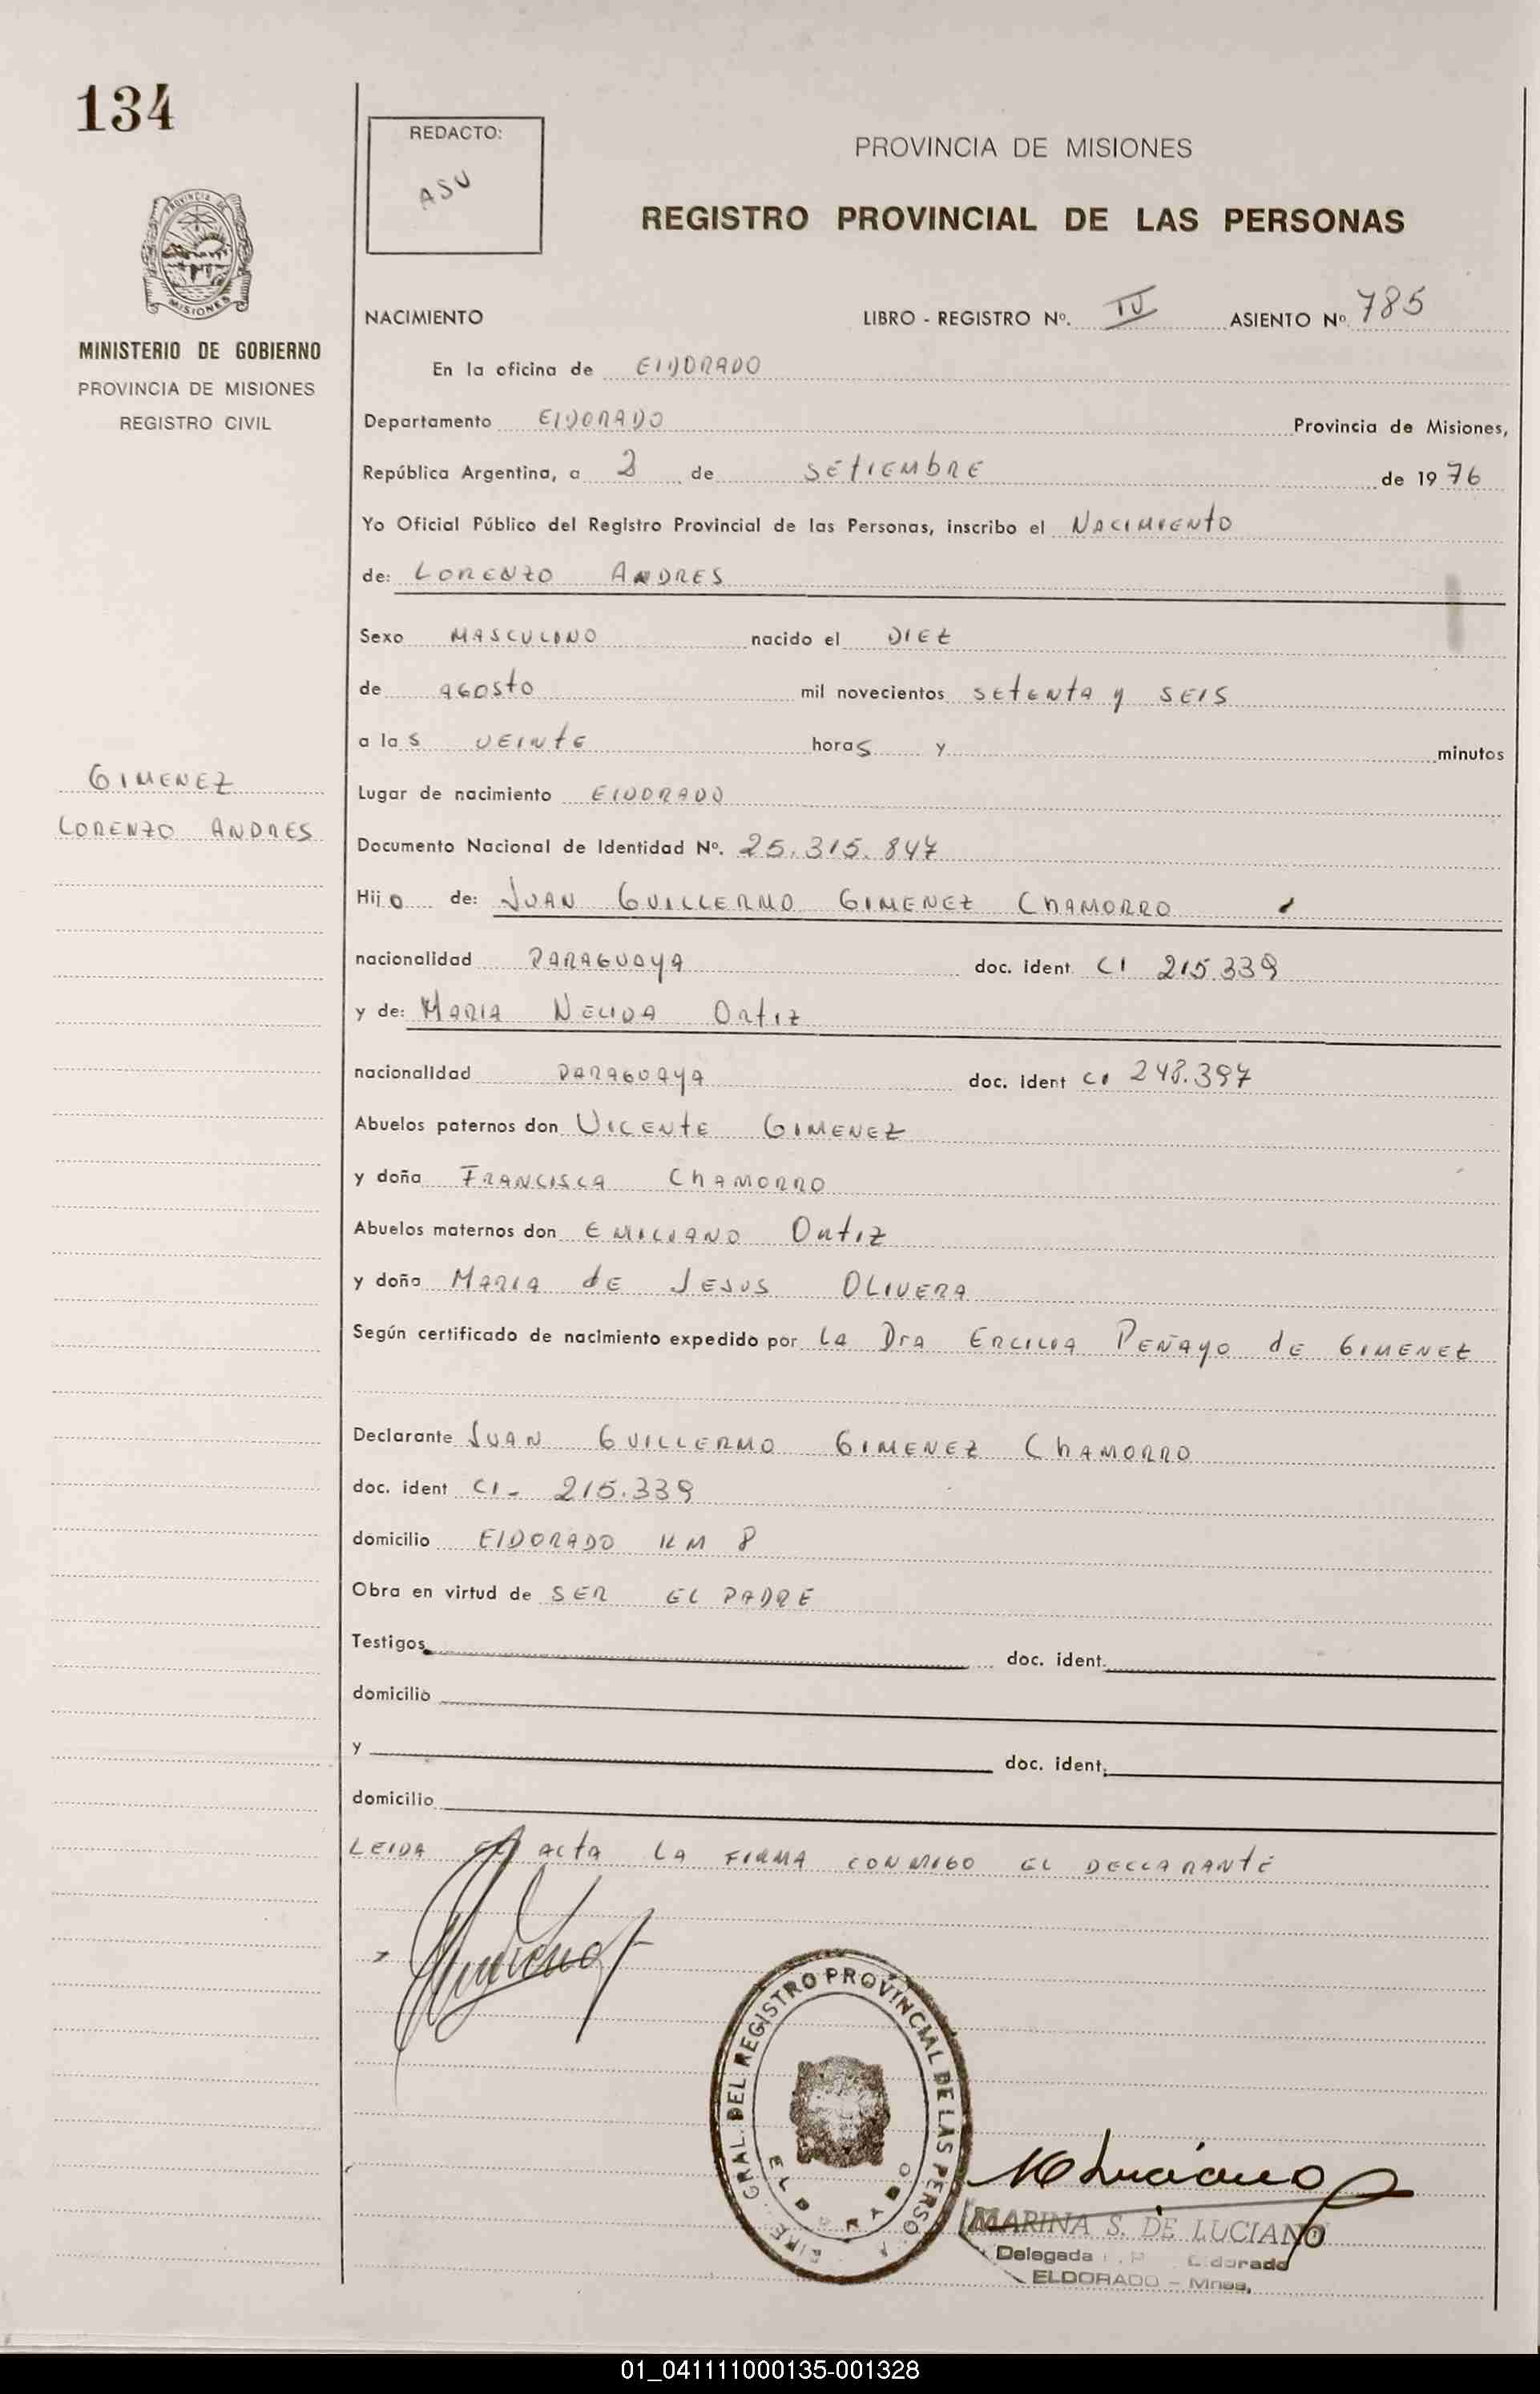 134
REDACTO:
ASU
PROVINCIA DE MISIONES
REGISTRO PROVINCIAL DE LAS PERSONAS
PROVINCIA DE
MISIONES
MINISTERIO DE GOBIERNO
PROVINCIA DE MISIONES
REGISTRO CIVIL
NACIMIENTO LIBRO - REGISTRO Nº. IV ASIENTO Nº 785
En la oficina de ElDORADO
Departamento ElDORADO Provincia de Misiones,
República Argentina, a 2 de SEtIEMbRE de 1976
Yo Oficial Público del Registro Provincial de las Personas, inscribo el NACIMIENtO
de: LORENZO ANDRES
Sexo MASCULINO nacido el DIEZ
de AGOStO mil novecientos SEtENtA y SEIS
a las VEINtE horas y minutos
GIMENEZ
LORENZO ANDRES
Lugar de nacimiento ElDORADO
Documento Nacional de Identidad Nº. 25.315.847
Hijo de: JUAN GUILLERMO GIMENEZ ChAMORRO
nacionalidad PARAGUAYA doc. ident. CI 215.339
y de: MARIA NELIDA ORtIZ
nacionalidad PARAGUAYA doc. ident CI 248.397
Abuelos paternos don VICENtE GIMENEZ
y doña FRANCISCA ChAMORRO
Abuelos maternos don EMILIANO ORtIZ
y doña MARIA dE JESUS OLIVERA
Según certificado de nacimiento expedido por LA DRA ERCILIA PEÑAYO dE GIMENEZ
Declarante JUAN GUILLERMO GIMENEZ ChAMORRO
doc. ident CI- 215.339
domicilio ElDORADO KM 8
Obra en virtud de SER EL PADRE
Testigos doc. ident.
domicilio
y doc. ident.
domicilio
LEIDA EL ACtA LA FIRMA CONMIGO EL DECLARANtE
DIRE. GRAL. DEL REGISTRO PROVINCIAL DE LAS PERSO
ELDORADO
M Luciano
MARINA S. DE LUCIANO
Delegada Eldorado
ELDORADO - Mnes,
01_041111000135-001328